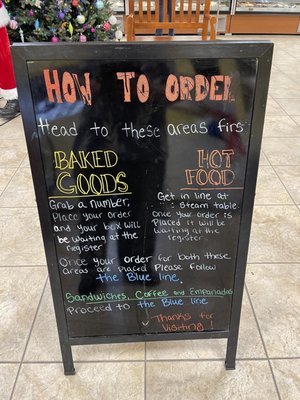 HOW TO ORDER
Head to these areas firs
BAKED
GOODS
Grab a number,
Place your order
and your box will
be waiting at the
register
HOT
FOOD
Get in line at
Steam table.
Once your order is
Placed it will be
waiting at the
register
Once your order for both these
areas are placed Please follow
the Blue line.
Sandwiches, Coffee and Empanadas
Proceed to the Blue line
Thanks for
Visiting!